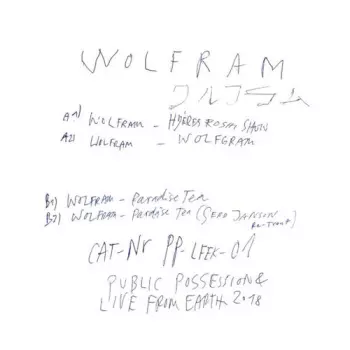 WOLFRAM
ワルフラム
A1) WOLFRAM - HYÈRES ROSAI SHON
A2) WOLFRAM - WOLFGRAM
B1) WOLFRAM - Paradise Tea
B2) WOLFRAM - Paradise Tea (GERD JANSON Re-Treat)
CAT-Nr PP-LFEK-01
PUBLIC POSSESSION &
LIVE FROM EARTH 2018